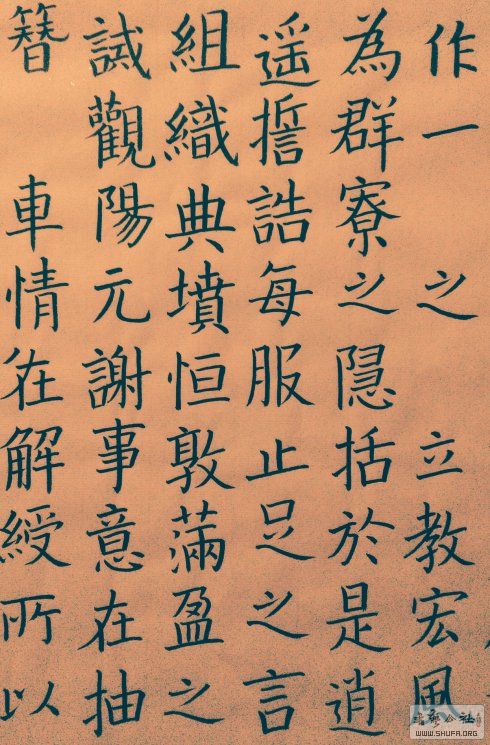 作一 之 立教宏風
為群寮之隱括於是逍
遥誓誥每服止足之言
組織典墳恒敦滿盈之
誡觀陽元謝事意在抽
簪 車情在解綬所以
公社
WWW.SHUFA.ORG